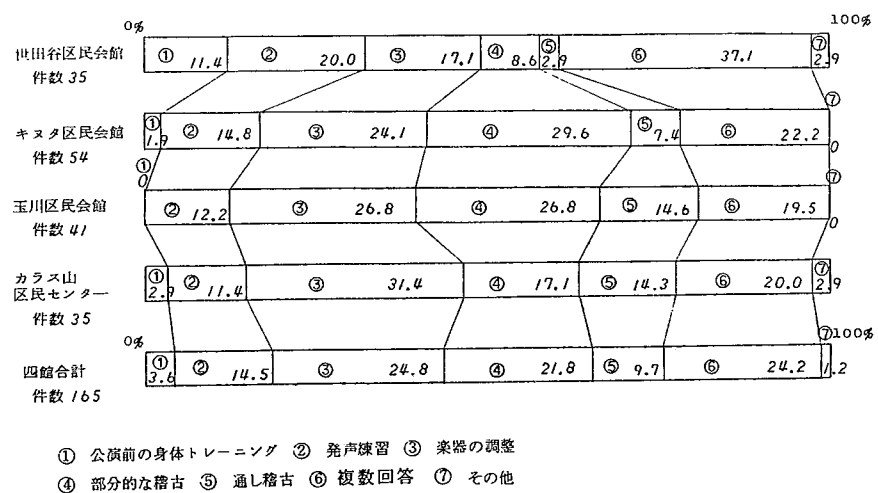 0% 100%
世田谷区民会館 ① 11.4 ② 20.0 ③ 17.1 ④ 8.6 ⑤ 2.9 ⑥ 37.1 ⑦ 2.9
件数 35
キヌタ区民会館 ① 1.9 ② 14.8 ③ 24.1 ④ 29.6 ⑤ 7.4 ⑥ 22.2 ⑦ 0
件数 54
玉川区民会館 ① 0 ② 12.2 ③ 26.8 ④ 26.8 ⑤ 14.6 ⑥ 19.5 ⑦ 0
件数 41
カラス山
区民センター ① 2.9 ② 11.4 ③ 31.4 ④ 17.1 ⑤ 14.3 ⑥ 20.0 ⑦ 2.9
件数 35
0% 100%
四館合計 ① 3.6 ② 14.5 ③ 24.8 ④ 21.8 ⑤ 9.7 ⑥ 24.2 ⑦ 1.2
件数 165
① 公演前の身体トレーニング ② 発声練習 ③ 楽器の調整
④ 部分的な稽古 ⑤ 通し稽古 ⑥ 複数回答 ⑦ その他